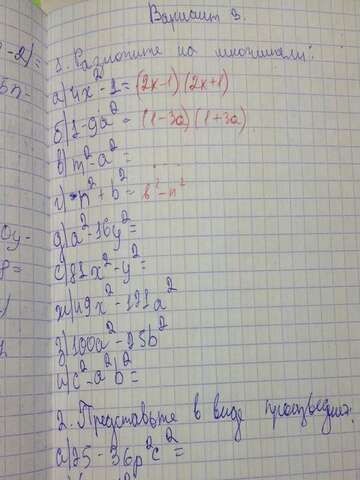 Вариант 3.
1. Разложите на множители:
а) 4x² - 1 = (2x-1)(2x+1)
б) 1 - 9a² = (1-3a)(1+3a)
в) m² - a² =
г) -n² + b² = b² - n²
д) a² - 16y² =
е) 81x² - y² =
ж) 49x² - 121a²
з) 100a² - 25b²
и) c² - a²b² =
2. Представьте в виде произведения:
а) 25 - 36p²c² =